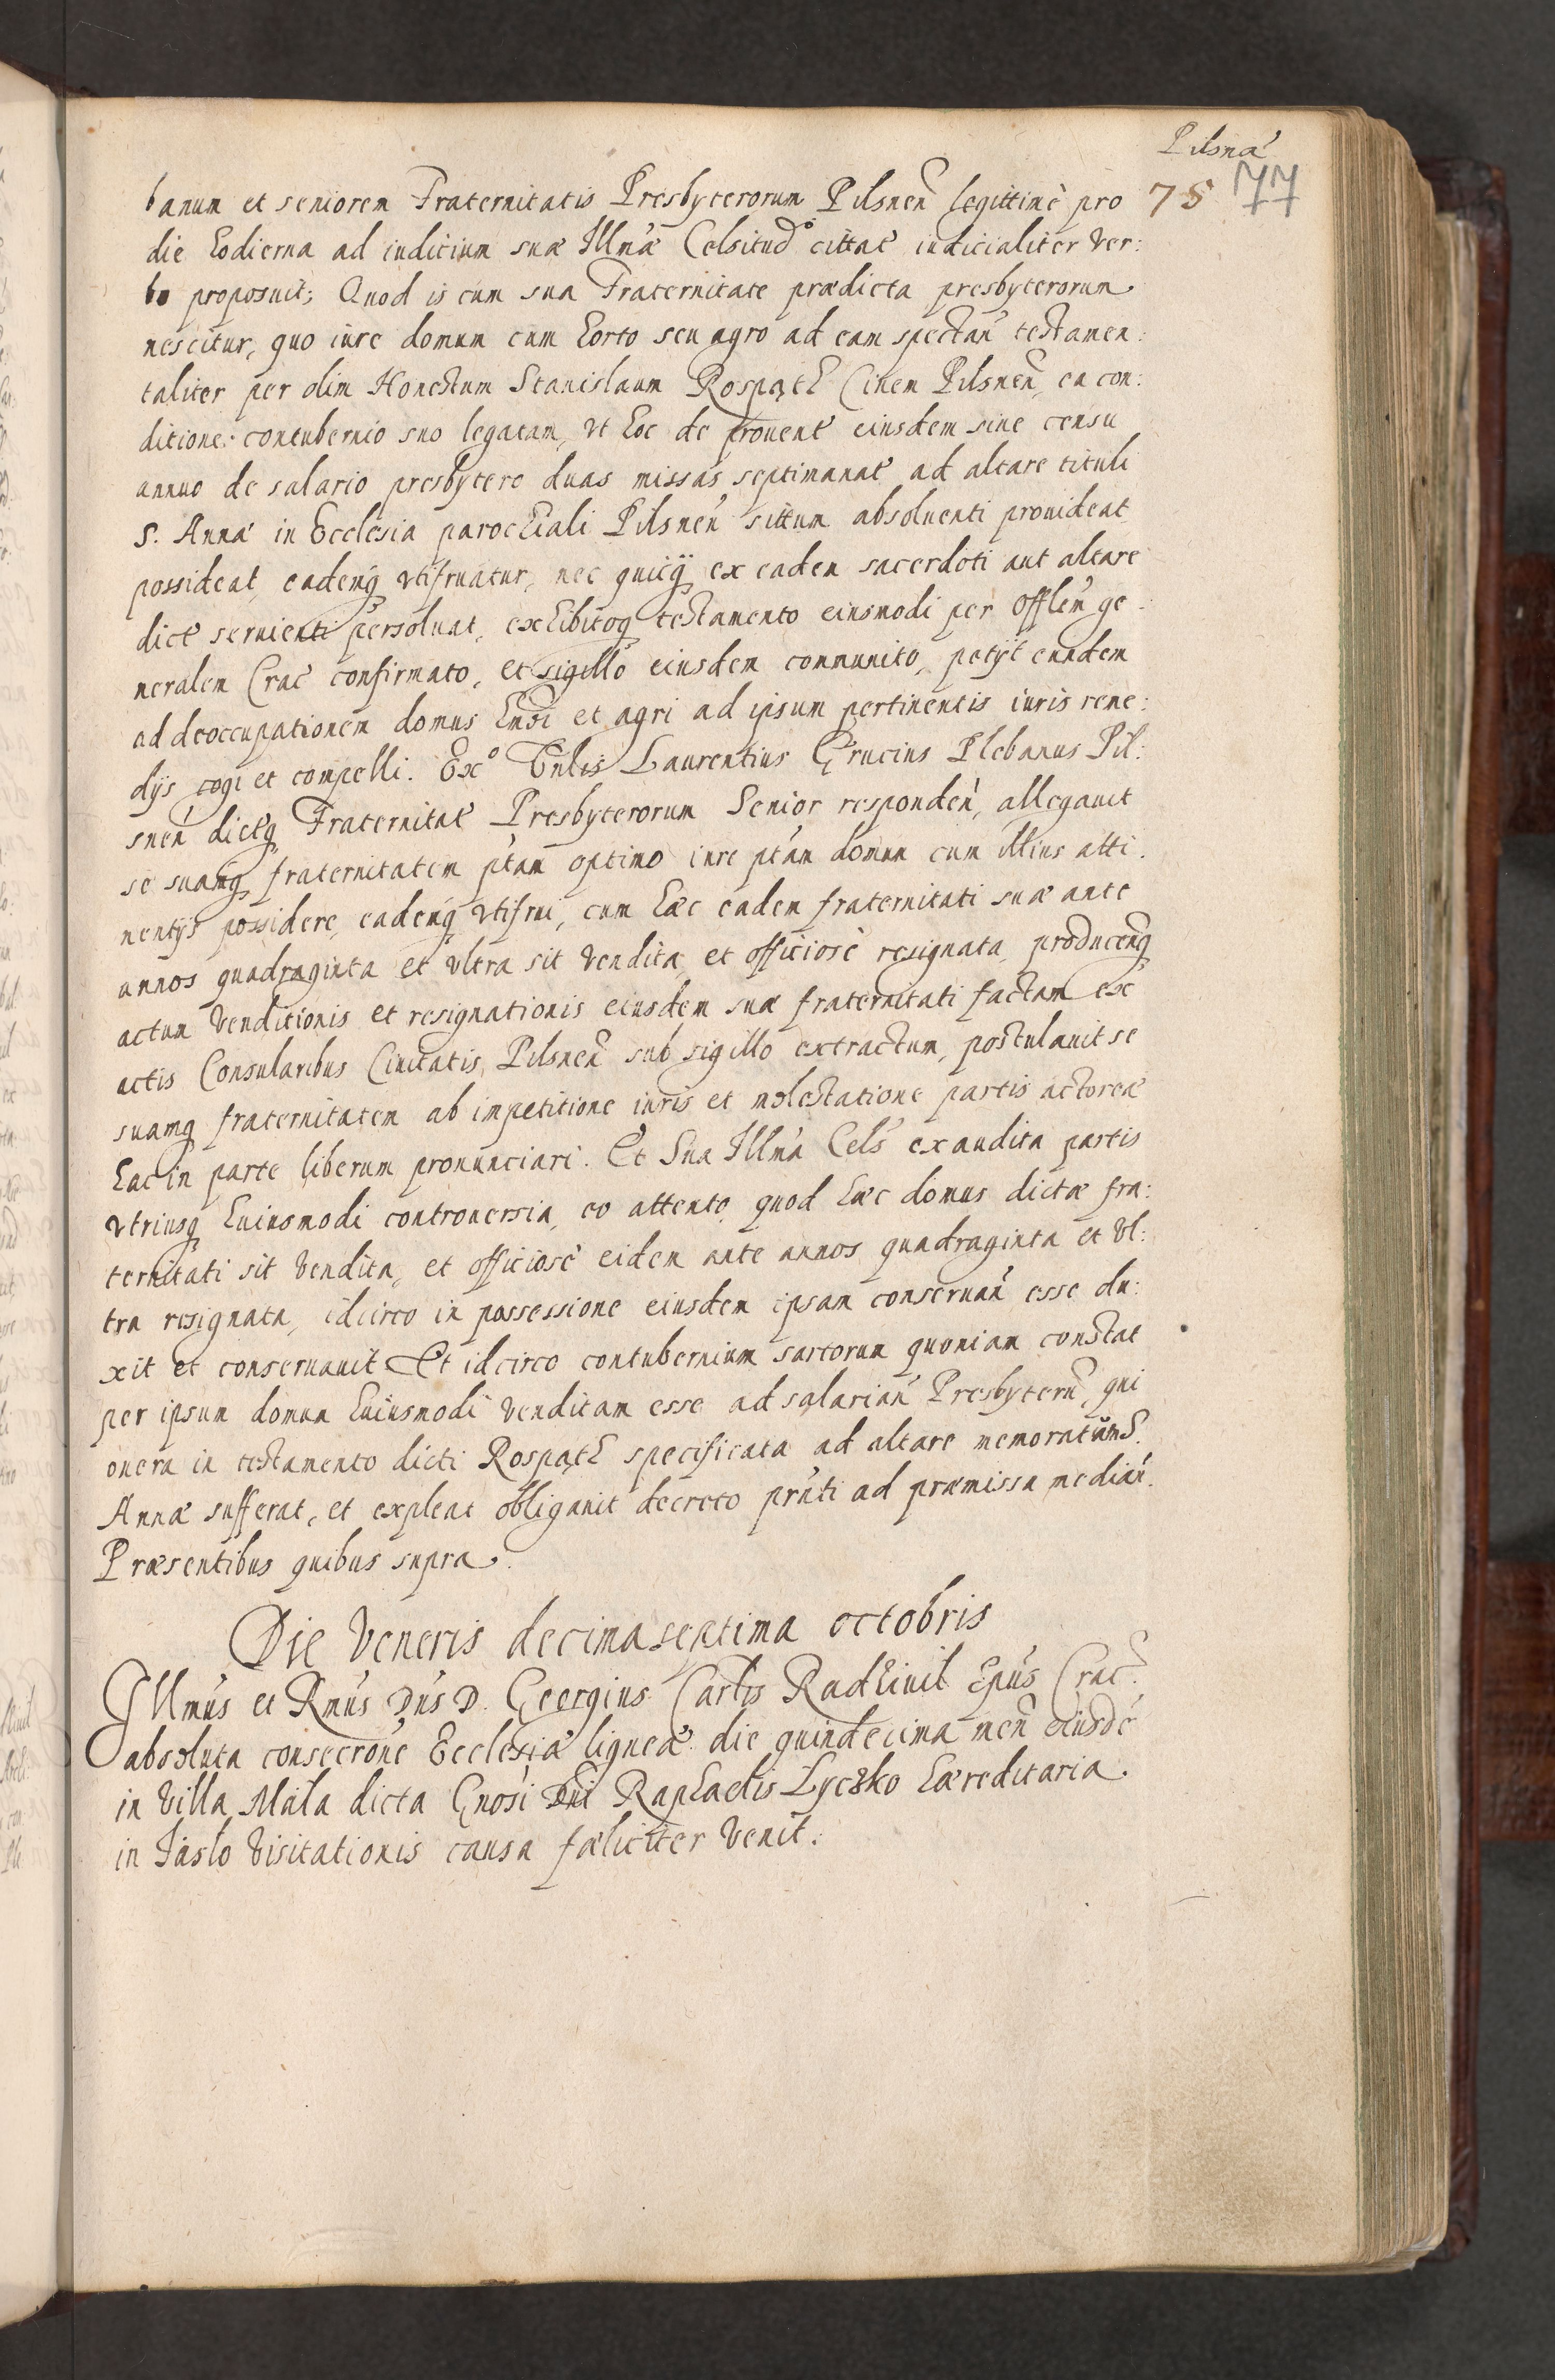 Pilsna
banum et seniorem Fraternitatis Presbyterorum Pilsneñ legittimè pro 75 77
die hodierna ad iudicium suæ Illmæ Celsitud° cittat iudicialiter ver:
bo proposuit; Quod is cum sua Fraternitate prædicta presbyterorum
nescitur, quo iure domum cum horto seu agro ad eam spectan testamen:
taliter per olim Honestum Stanislaum Rospąth Civem Pilsneñ, ea con:
ditione contubernio suo legatam, vt hoc de prouent eiusdem siue censu
annuo de salario presbytero duas missas septimanat ad altare tituli
S. Annæ in Ecclesia parochiali Pilsneñ sittum absoluenti prouideat
possideat, eademq vtifruatur, nec quicq ex eadem sacerdoti aut altare
dict seruienti persoluat, exhibitoq testamento eiusmodi per Offlem ge:
neralem Crac confirmato, et sigillo eiusdem communito, petijt eundem
ad deoccupationem domus hmoi et agri ad ipsum pertinentis iuris reme:
dijs cogi et compelli. Ex° Vnlis Laurentius Grucius Plebanus Pil:
sneñ dictæq Fraternitat Presbyterorum Senior responden, allegauit
se suamq fraternitatem ptam optimo iure ptam domum cum illius atti:
nentijs possidere, eademq vtifrui, cum hæc eadem fraternitati suæ ante
annos quadraginta et vltra sit vendita, et officiosè resignata, producenq
actum venditionis et resignationis eiusdem suæ fraternitati factam ex
actis Consularibus Ciuitatis Pilsneñ sub sigillo extractum, postulauit se
suamq fraternitatem ab impetitione iuris et molestatione partis actoreæ
hac in parte liberum pronunciari. Et Sua Illma Cels exaudita partis
vtriusq huiusmodi controuersia, eo attento quod hæc domus dictæ fra:
ternitati sit vendita, et officiosè eidem ante annos quadraginta et vl:
tra resignata, idcirco in possessione eiusdem ipsam conseruan esse du:
xit et conseruauit Et idcirco contubernium sartorum quoniam constat
per ipsum domum huiusmodi venditam esse ad salarian Presbyterũ, qui
onera in testamento dicti Rospąth specificata ad altare memoratum S.
Annæ sufferat, et expleat obligauit decreto prnti ad præmissa median.
Præsentibus quibus supra.
Die Veneris decimaseptima octobris
Illmus et Rmus Dns D. Georgius Carlis Radhiuil Epus Crac:
absoluta consecrone Ecclesiæ ligneæ die quindecima men eiusdẽ
in villa Mala dicta Gnosi Dni Raphaelis Lyczko hæreditaria
in Jaslo visitationis causa fæliciter venit.